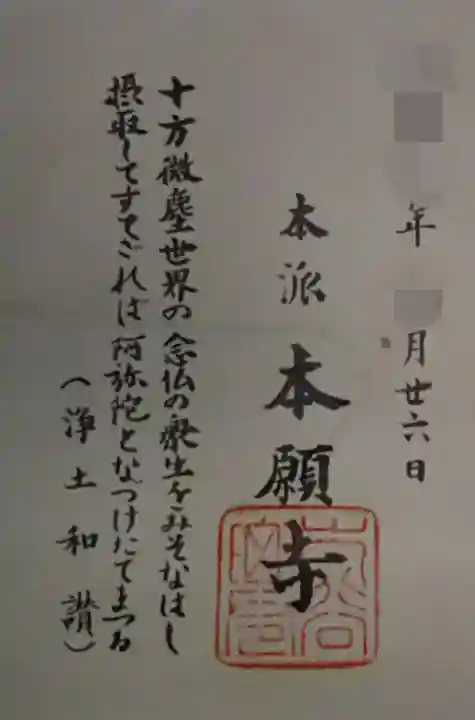 年 月廿六日
本派本願寺
十方微塵世界の念仏の衆生をみそなはし
摂取してすてざれは阿弥陀となつけたてまつる
(浄土和讃)